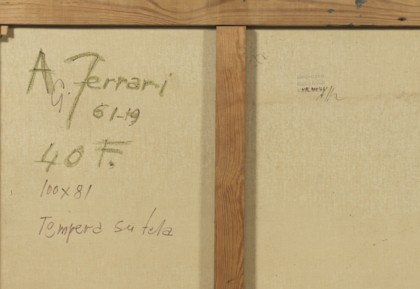 A. G. Ferrari
61-19
40 F.
100x81
Tempera su tela